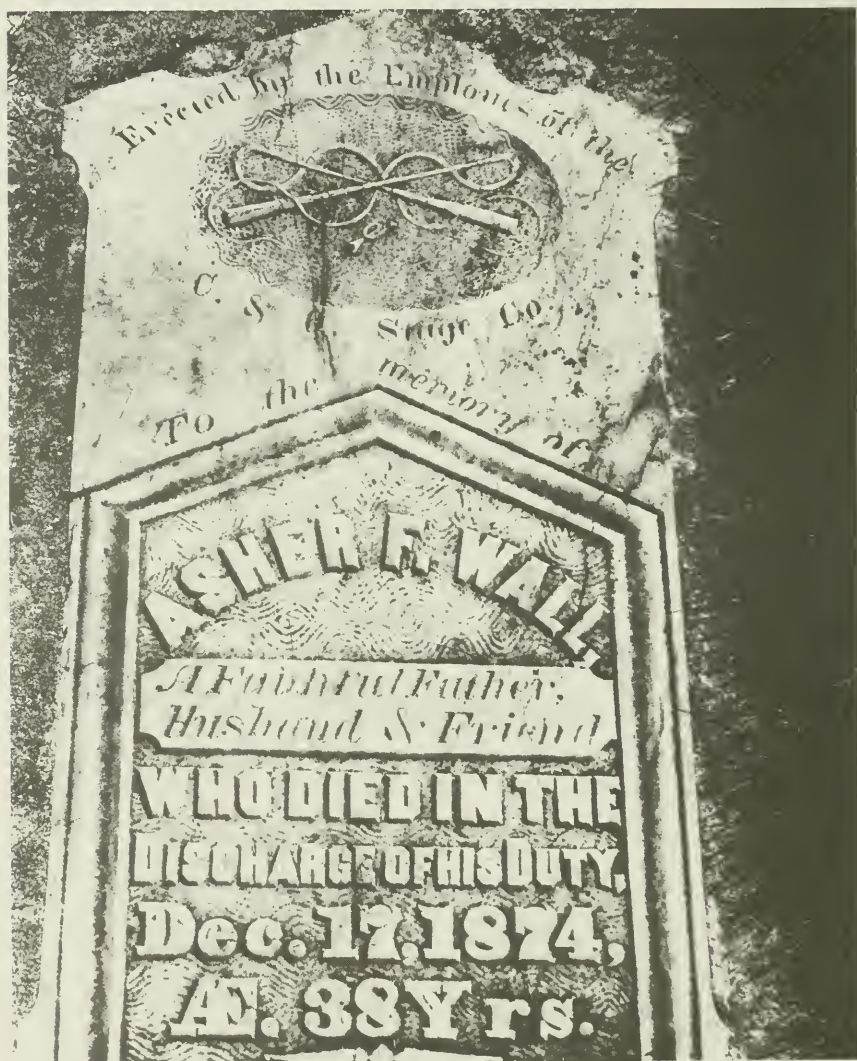 Erected by the Employes of the
C. & Stage Co
To the memory of
ASHER F. WALL,
A Faithful Father,
Husband & Friend
WHO DIED IN THE
DISCHARGE OF HIS DUTY,
Dec. 17, 1874,
Æ. 38 Yrs.